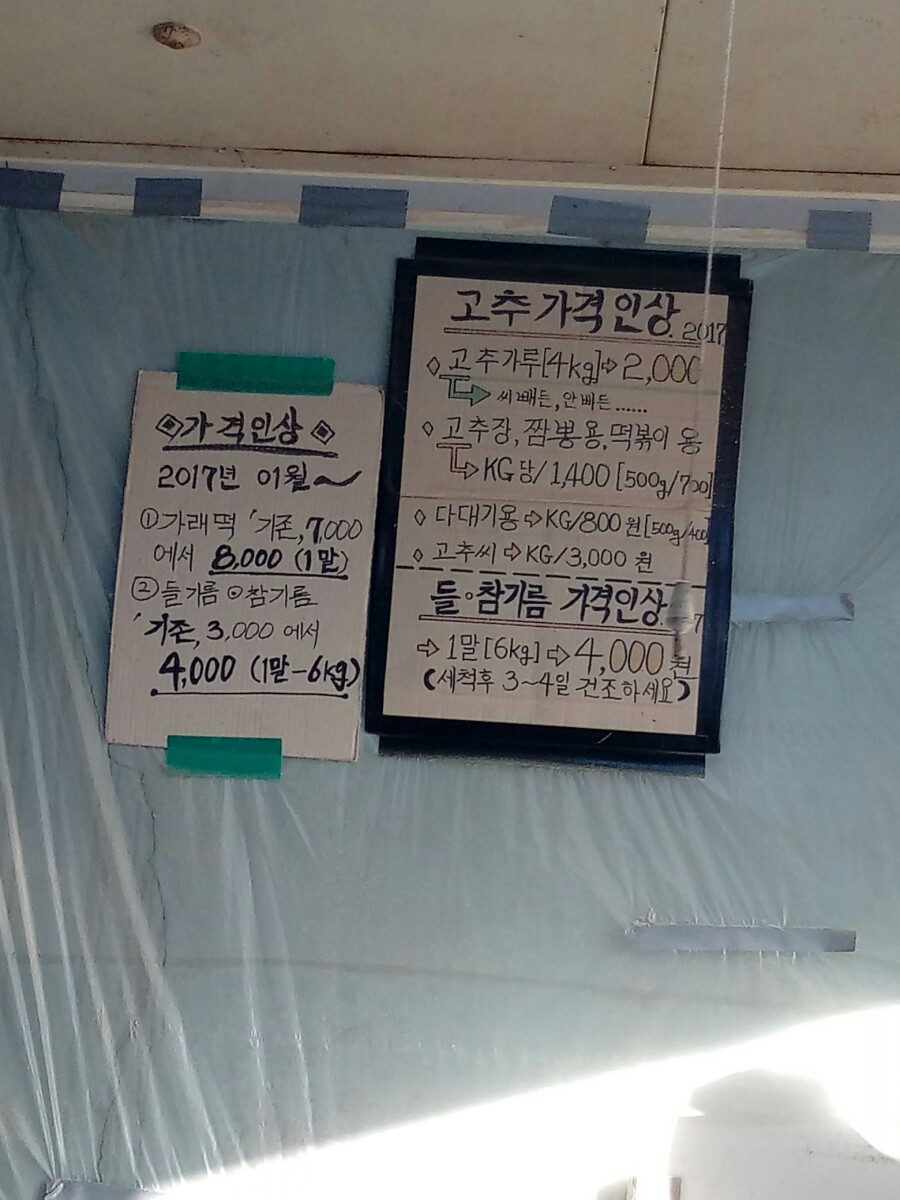 가격인상
2017년 01월~
①가래떡 '기존, 7,000
에서 8,000 (1말)
②들기름⊙참기름
'기존, 3,000 에서
4,000 (1말-6kg)
고추가격인상. 2017
◇고추가루[4kg]⇨2,000
씨빼든, 안빠든......
◇고추장, 짬뽕용, 떡볶이용
KG당/1,400 [500g/700]
◇다대기용⇨KG/800원[500g/400]
◇고추씨⇨KG/3,000원
들·참기름 가격인상. 7
⇨1말[6kg]⇨4,000원
(세척후 3~4일 건조하세요)